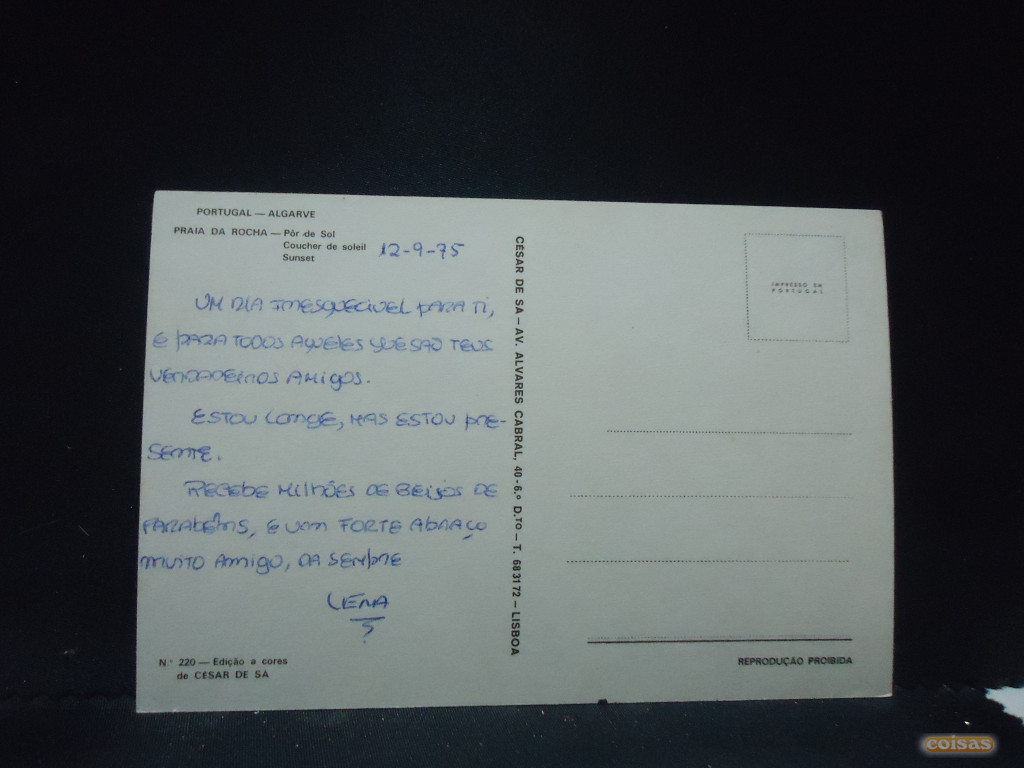 PORTUGAL — ALGARVE
PRAIA DA ROCHA — Pôr de Sol
Coucher de soleil
Sunset
12-9-75
UM DIA INESQUECIVEL PARA TI,
E PARA TODOS AQUELES QUE SÃO TEUS
VERDADEIROS AMIGOS.
ESTOU LONGE, MAS ESTOU PRE-
SENTE.
RECEBE MILHÕES DE BEIJOS DE
PARABÉNS, E UM FORTE ABRAÇO
MUITO AMIGO, DA SEMPRE
LENA
N.º 220 — Edição a cores
de CÉSAR DE SÁ
CÉSAR DE SÁ — AV. ALVARES CABRAL, 40-6.º D.TO — T. 683172 — LISBOA
IMPRESSO EM
PORTUGAL
REPRODUÇÃO PROIBIDA
coisas